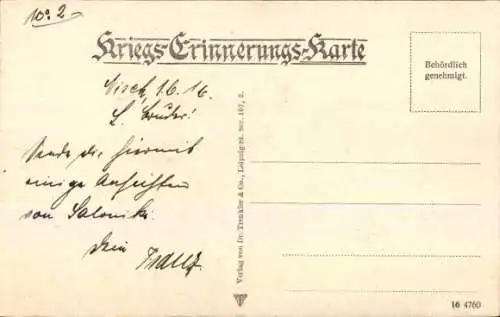 No. 2 -
Kriegs-Erinnerungs-Karte
Behördlich
genehmigt.
Nisch, 1.6.16.
L. Bruder!
Sende dir hiermit
einige Ansichten
von Saloniki.
Dein
Verlag von Dr. Trenkler & Co., Leipzig-St. Ser. 107, 2.
16 4760